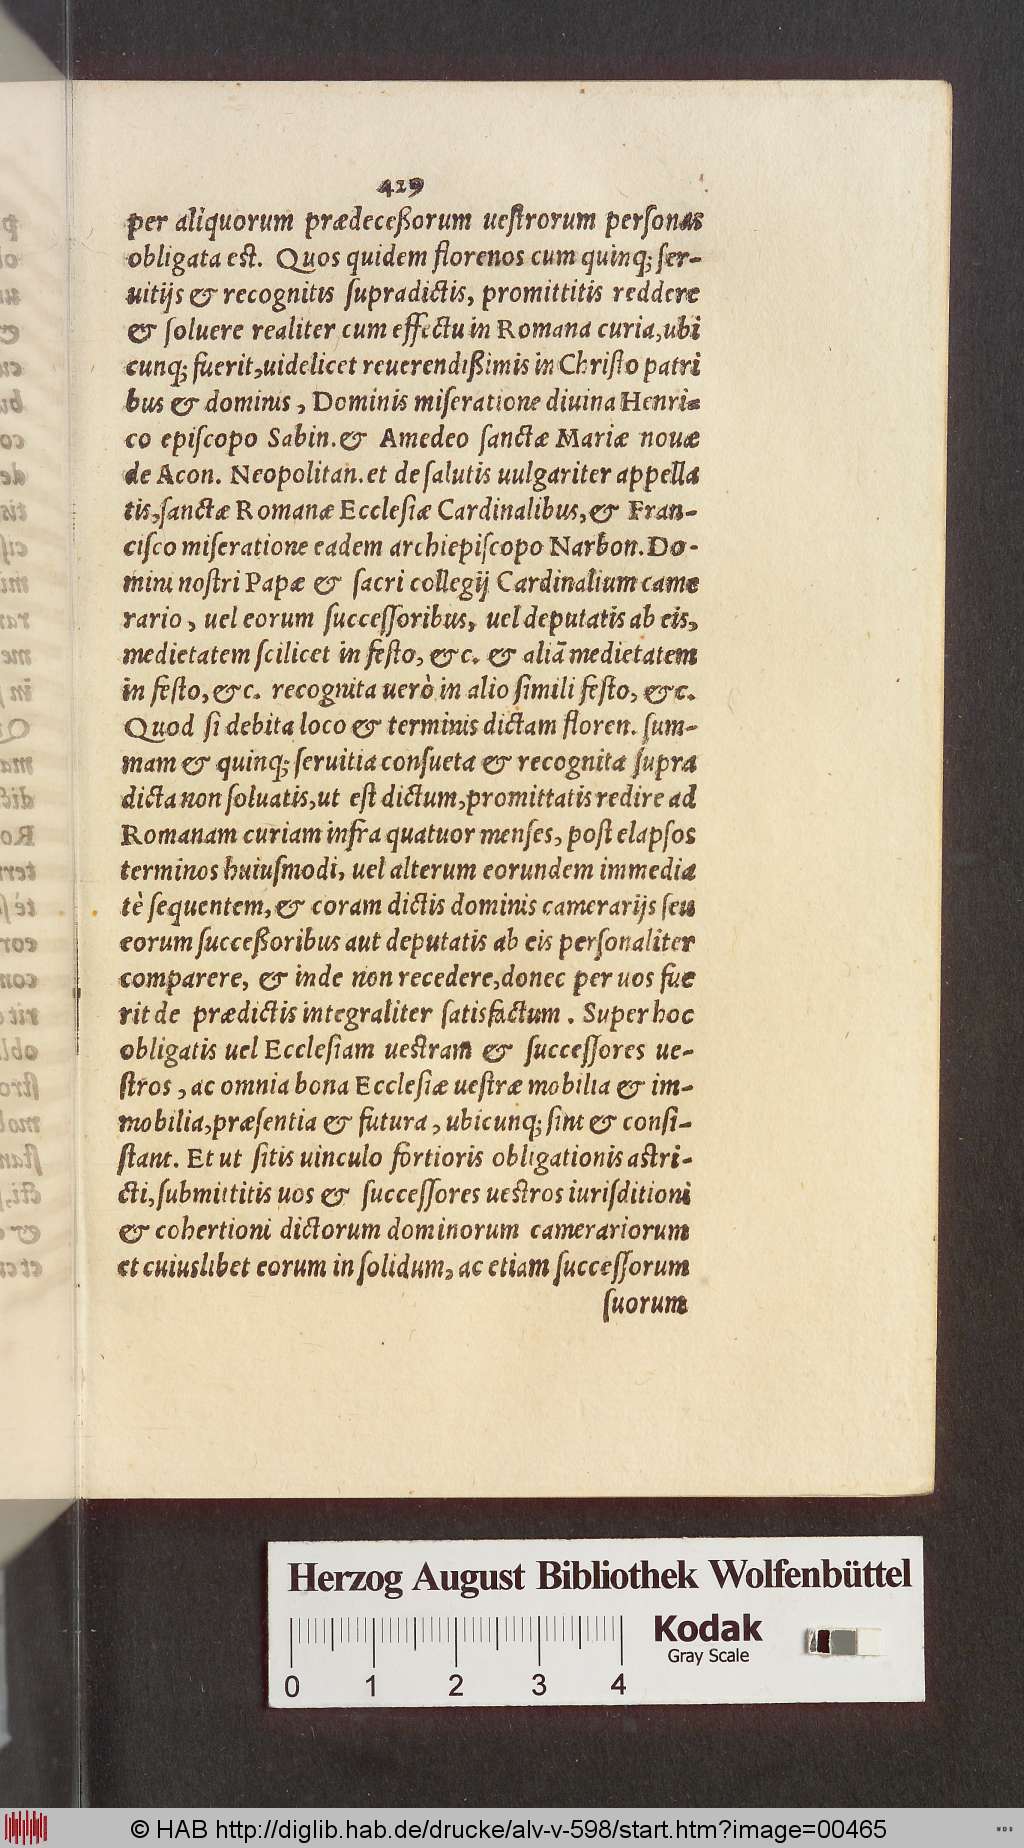 429
per aliquorum prædeceßorum ueſtrorum perſonas
obligata est. Quos quidem florenos cum quinq; ſer-
uitijs & recognitis ſupradictis, promittitis reddere
& ſoluere realiter cum effectu in Romana curia, ubi
cunq; fuerit, uidelicet reuerendißimis in Chriſto patri
bus & dominis, Dominis miſeratione diuina Henri-
co epiſcopo Sabin. & Amedeo ſanctæ Mariæ nouæ
de Acon. Neopolitan. et de ſalutis uulgariter appella
tis, ſanctæ Romanæ Eccleſiæ Cardinalibus, & Fran-
ciſco miſeratione eadem archiepiſcopo Narbon. Do-
mini noſtri Papæ & ſacri collegij Cardinalium came
rario, uel eorum ſucceſſoribus, uel deputatis ab eis,
medietatem ſcilicet in feſto, &c. & aliã medietatem
in feſto, &c. recognita uerò in alio ſimili feſto, &c.
Quod ſi debita loco & terminis dictam floren. ſum-
mam & quinq; ſeruitia conſueta & recognita ſupra
dicta non ſoluatis, ut eſt dictum, promittatis redire ad
Romanam curiam infra quatuor menſes, poſt elapſos
terminos huiuſmodi, uel alterum eorundem immedia
tè ſequentem, & coram dictis dominis camerarijs ſeu
eorum ſucceßoribus aut deputatis ab eis perſonaliter
comparere, & inde non recedere, donec per uos fue
rit de prædictis integraliter ſatisfactum. Super hoc
obligatis uel Eccleſiam ueſtram & ſucceſſores ue-
ſtros, ac omnia bona Eccleſiæ ueſtræ mobilia & im-
mobilia, præſentia & futura, ubicunq; ſint & conſi-
ſtant. Et ut ſitis uinculo fortioris obligationis aſtri-
cti, ſubmittitis uos & ſucceſſores ueſtros iuriſditioni
& cohertioni dictorum dominorum camerariorum
et cuiuslibet eorum in ſolidum, ac etiam ſucceſſorum
ſuorum
Herzog August Bibliothek Wolfenbüttel
Kodak
Gray Scale
0 1 2 3 4
© HAB http://diglib.hab.de/drucke/alv-v-598/start.htm?image=00465